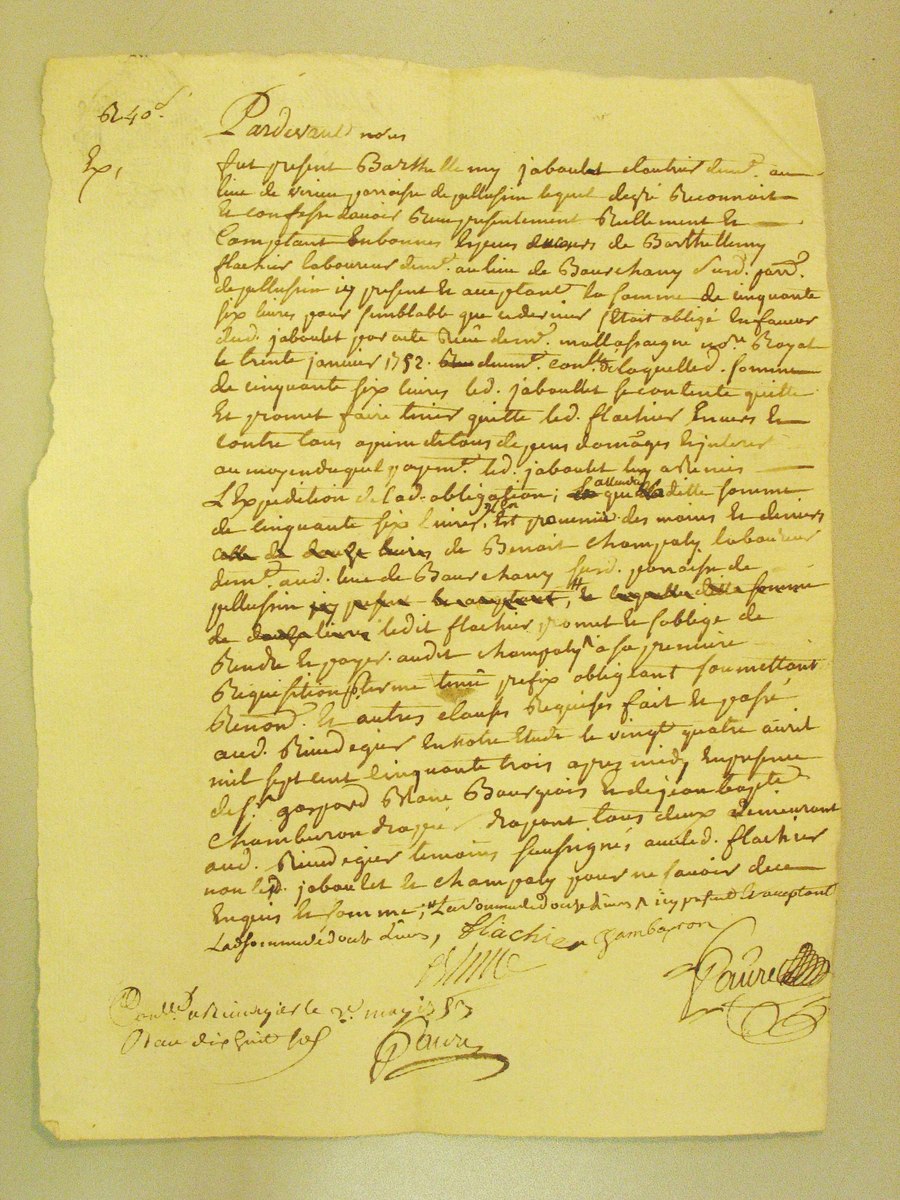 R 40 s
Ex,
Pardevant nous
fut present Barthellemy jaboulet cloutrier demt. au
lieu de verieu parroisse de pellussin lequel degré Reconnoit
Et confesse d'avoir Receu presentement Reellement Et
Comptant En bonnes Especes du cours de Barthellemy
flachier laboureur demt. au lieu de Bourchany susd. parre.
de pellussin icy present Et acceptant la somme de cinquante
six livres pour semblable que ce dernier s'Etait obligé En faveur
dud. jaboulet par acte Receu de me. mallassaigne nore. Royal
le trente janvier 1752. duemt. conllé de laquelle d. somme
de cinquante six livres led. jaboullet se contente quitte
Et promet faire tenir quitte led. flachier Envers Et
contre tous a peine de tous depens domâges Et interest
au moyen duquel payemt. led. jaboulet luy a Remis
L'Expedition de lad. obligation; attendu que laditte somme
de cinquante six livres Est provenue des mains Et deniers
de Benoit Champaly laboureur
demt. aud. lieu de Bourchany susd. parroisse de
pellussin icy present Et acceptant, # laquelle ditte somme
de douze livres ledit flachier promet Et soblige de
Rendre Et payer audit champaly ^ a sa premiere
Requisition p. terme prefix obligeant soumettant
Renond. Et autres clauses Requises fait Et passé
aud. Rivedegier En notre Etude le vingt quatre avril
mil sept cent cinquante trois apres midy En presence
de sr. gaspard Blanc Bourgeois Et de jean bapte.
Chamburon drapant tous deux demeurant
aud. Rivedegier temoins soussignés avec led. flachier
non lesd. jaboulet Et champaly pour ne savoir de ce
Enquis Et sommé; # La somme de douze Livres ^ icy present Et acceptant
Lad somme de douze Livres, flachier chambayron
Blanc
Faure
Conllé. a Rivedegier le 2e. may 1753
Reçu dix huit sols
Faure